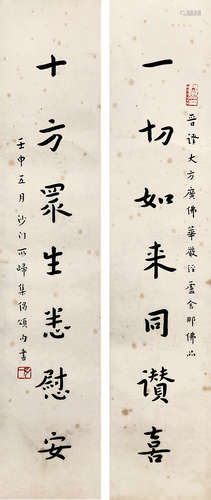 一切如来同讃喜
晋譯大方廣佛華嚴經盧舍那佛品
十方眾生悉慰安
壬申五月沙门所歸集偈頌句書